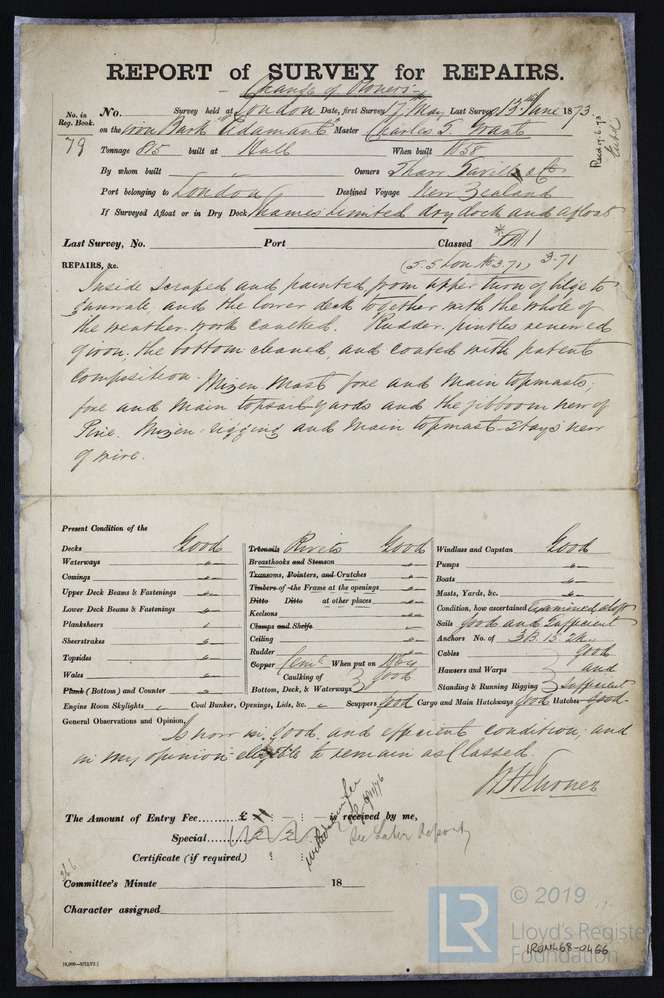 REPORT of SURVEY for REPAIRS.
Change of Owners
No. in Reg. Book. 79
No. Survey held at London Date, first Survey 17 May Last Survey 13th June 1873
on the iron Bark "Adamant" Master Charles T.
Tonnage 815 built at Hull When built 1858
By whom built Owners Savill & Co
Port belonging to London Destined Voyage New Zealand
If Surveyed Afloat or in Dry Dock Thames Limited dry dock and afloat
Last Survey, No. Port Classed
(S.S. Lon No 3.71) 3-71
REPAIRS, &c.
Inside scraped and painted from upper turn of bilge to
gunwale, and the lower deck together with the whole of
the weather work caulked. Rudder pintles renewed
of iron, the bottom cleaned, and coated with patent
Composition. Mizen Mast fore and Main topmasts,
fore and Main topsail-yards and the jibboom new of
Pine. Mizen rigging and Main topmast-Stays new
of wire.
Present Condition of the
Decks Good
Waterways "
Comings "
Upper Deck Beams & Fastenings "
Lower Deck Beams & Fastenings "
Planksheers "
Sheerstrakes "
Topsides "
Wales "
Plank (Bottom) and Counter "
Treenails Rivets Good
Breasthooks and Stemson "
Transoms, Pointers, and Crutches "
Timbers of the Frame at the openings "
Ditto Ditto at other places "
Keelsons "
Clamps and Shelfs "
Ceiling "
Rudder "
Copper When put on
Caulking of
Bottom, Deck, & Waterways } good
Windlass and Capstan Good
Pumps "
Boats "
Masts, Yards, &c. "
Condition, how ascertained Examined aloft
Sails Good and Sufficient
Anchors No. of 3B. 1S. 2K.
Cables good
Hawsers and Warps and
Standing & Running Rigging Sufficient
Engine Room Skylights " Coal Bunker, Openings, Lids, &c. " Scuppers good Cargo and Main Hatchways Good Hatches good
General Observations and Opinion,
Is now in good and efficient condition, and
in my opinion eligible to remain as Classed.
The Amount of Entry Fee £ : : is received by me,
Special 2 2
See Later Report
Certificate (if required)
Committee's Minute 18
Character assigned
LR
© 2019
Lloyd's Register
Foundation
IRON468-0466